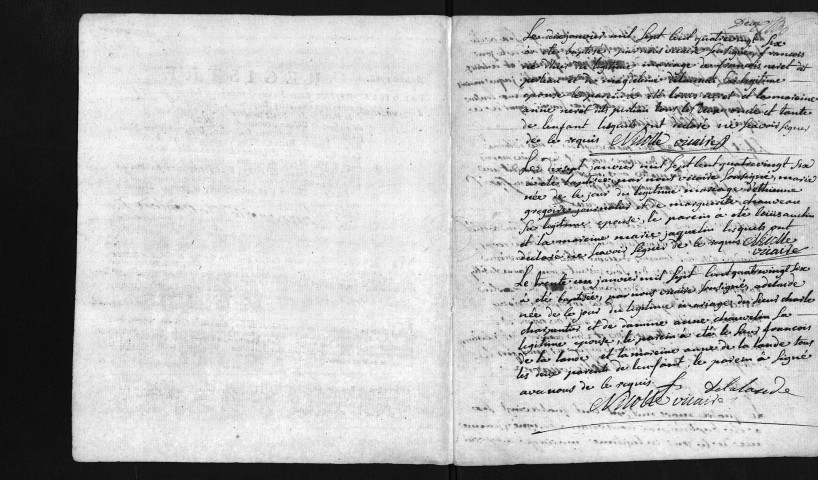 Deux
Le janvier mil sept cent quatrevingt six
à été baptisé par nous vicaire soussigné, francois
né légitime mariage de francois neret dit
poitier et de magdeleine sa légitime
épouse le parein à été louis neret et la mareine
anne neret dit poitier tous les deux oncle et tante
de lenfant lesquels ont déclaré ne scavoir signer
de ce requis Nicolle vicaire
Le janvier mil sept cent quatrevingt six
à été baptisée, par nous vicaire soussigné, marie
née de ce jour du légitime mariage d'éthienne
gregoire journalier et de marguerite chauveau
sa légitime epouse, le parein à été louis
et la mareine marie jaquelin lesquels ont
declaré ne scavoir signer de ce requis Nicolle
vicaire
Le trente un janvier mil sept cent quatrevingt six
à été baptisée, par nous vicaire soussigné, adelaide
née de ce jour du légitime mariage du sieur charle
charpentier et de damme anne chauvelin sa
legitime epouse, le parein à été le sieur francois
de la lande et la mareine anne de la lande tous
les deux parents de lenfant, le parein à signé
avec nous de ce requis
Delalande
Nicolle vicaire